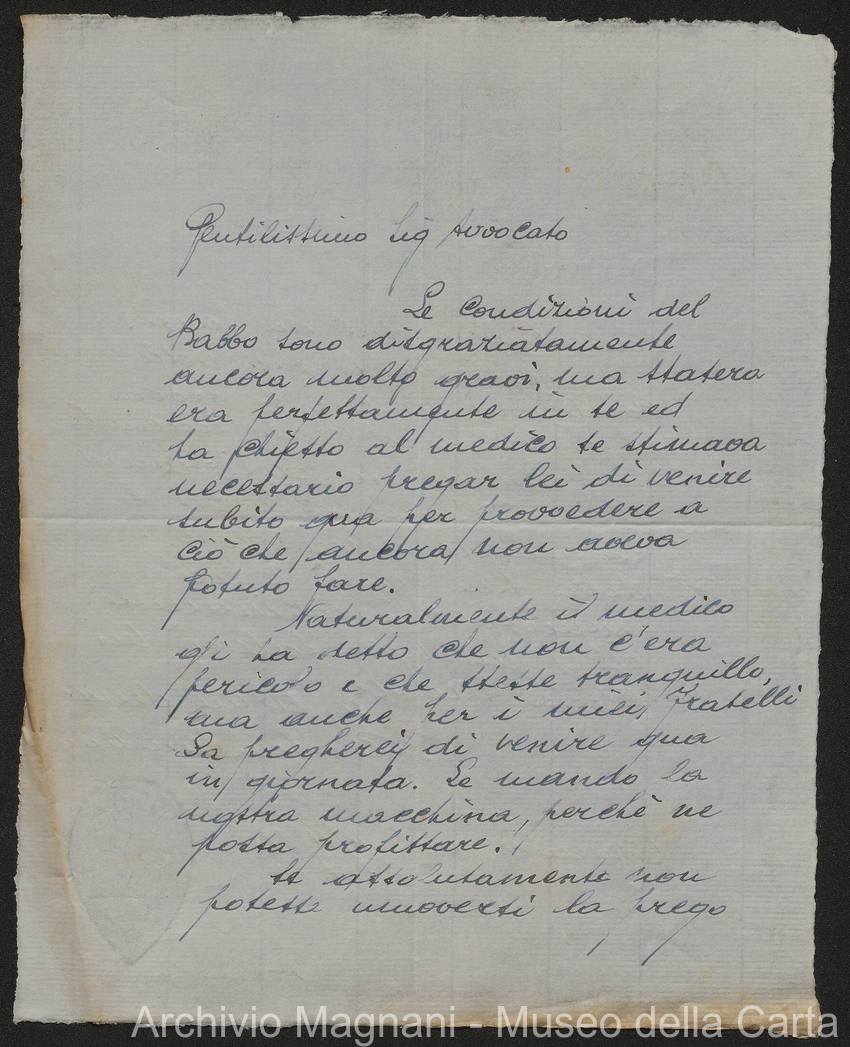 Gentilissimo Sig Avvocato
Le Condizioni del
Babbo sono disgraziatamente
ancora molto gravi, ma stasera
era perfettamente in se ed
ha chiesto al medico se stimava
necessario pregar lei di venire
subito qua per provvedere a
ciò che ancora non aveva
potuto fare.
Naturalmente il medico
gli ha detto che non c'era
pericolo e che stesse tranquillo,
ma anche per i miei Fratelli
La pregherei di venire qua
in giornata. Le mando la
nostra macchina, perchè ne
possa profittare.
Se assolutamente non
potesse muoversi la prego
Archivio Magnani - Museo della Carta